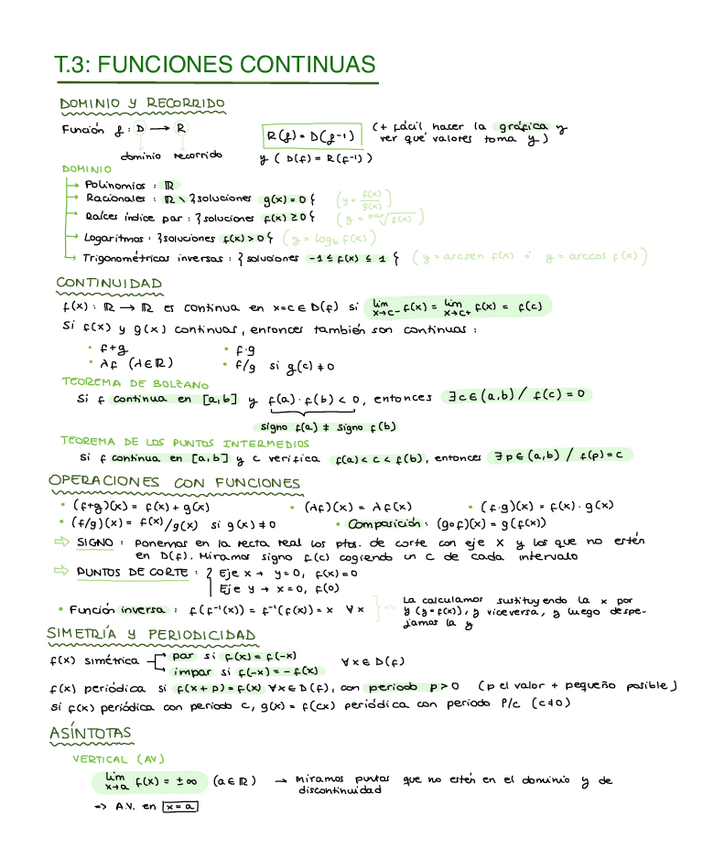 T.3: FUNCIONES CONTINUAS
DOMINIO Y RECORRIDO
Función f: D → R
dominio recorrido
R(f) = D(f-1)
y ( D(f) = R(f-1) )
(+ fácil hacer la gráfica y
ver qué valores toma y)
DOMINIO
Polinomios : ℝ
Racionales : ℝ \ {soluciones g(x) = 0{ (y = f(x)/g(x))
Raíces índice par : {soluciones f(x) ≥ 0{ (y = par√f(x))
Logaritmos : {soluciones f(x) > 0{ (y = log_b f(x))
Trigonométricas inversas : { soluciones -1 ≤ f(x) ≤ 1 { (y = arcsen f(x) o' y = arccos f(x))
CONTINUIDAD
f(x) : ℝ → ℝ es continua en x=c ∈ D(f) si lim x→c- f(x) = lim x→c+ f(x) = f(c)
Si f(x) y g(x) continuas, entonces también son continuas :
• f+g • f·g
• λf (λ∈ℝ) • f/g si g(c) ≠ 0
TEOREMA DE BOLZANO
Si f continua en [a,b] y f(a)·f(b) < 0, entonces ∃c∈(a,b) / f(c) = 0
signo f(a) ≠ signo f(b)
TEOREMA DE LOS PUNTOS INTERMEDIOS
Si f continua en [a,b] y c verifica f(a) < c < f(b), entonces ∃p∈(a,b) / f(p) = c
OPERACIONES CON FUNCIONES
• (f+g)(x) = f(x) + g(x) • (λf)(x) = λf(x) • (f·g)(x) = f(x)·g(x)
• (f/g)(x) = f(x)/g(x) si g(x) ≠ 0 • Composición : (g∘f)(x) = g(f(x))
⇒ SIGNO : Ponemos en la recta real los ptos. de corte con eje X y los que no estén
en D(f). Miramos signo f(c) cogiendo un c de cada intervalo
⇒ PUNTOS DE CORTE : { Eje x → y=0, f(x)=0
Eje y → x=0, f(0)
• Función inversa : f(f-1(x)) = f-1(f(x)) = x ∀x } => La calculamos sustituyendo la x por
y (y=f(x)), y viceversa, y luego despe-
jamos la y
SIMETRÍA Y PERIODICIDAD
f(x) simétrica par si f(x) = f(-x)
impar si f(-x) = -f(x) ∀x∈D(f)
f(x) periódica si f(x+p) = f(x) ∀x∈D(f), con periodo p>0 (p el valor + pequeño posible)
Si f(x) periódica con periodo c, g(x) = f(cx) periódica con periodo P/c (c≠0)
ASÍNTOTAS
VERTICAL (AV)
lim x→a f(x) = ±∞ (a∈ℝ) → Miramos puntos que no estén en el dominio y de
discontinuidad
=> A.V. en x=a